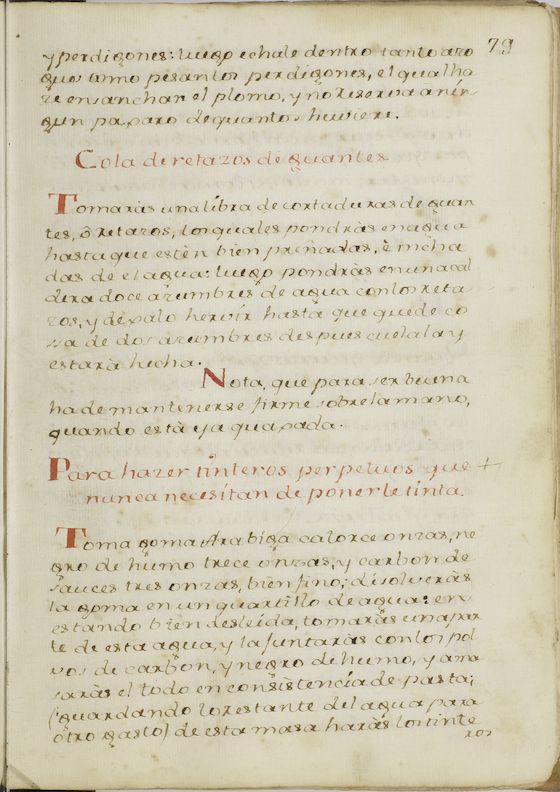 79
y perdigones: luego echale dentro tanto azo
gue como pesan los perdigones, el qual ha
ze ensanchar el plomo, y no reserva a nin
gun paxaro de quantos huviere.
Cola de retazos de guantes
Tomaràs una libra de cortaduras de guan
tes, ô retazos, los quales pondràs en agua
hasta que estèn bien preñadas, è incha
das de el agua: luego pondràs en una cal
dera doce azumbres de agua con los reta
zos, y dexalo hervir hasta que quede co
sa de dos azumbres despues cuelala y
estarà hecha.
Nota, que para ser buena
ha de mantenerse firme sobre la mano,
quando està ya quaxada.
Para hazer tinteros perpetuos que +
nunca necesitan de ponerle tinta.
Toma goma Arabiga catorce onzas, ne
gro de humo trece onzas, y carbon de
sauces tres onzas, bien fino; disolveràs
la goma en un quartillo de agua: en
estando bien desleida, tomaràs una par
te de esta agua, y la juntaràs con los pol
vos de carbon, y negro de humo, y ama
saràs el todo en consistencia de pasta;
(guardando lo restante del agua para
otro gasto) de esta masa haràs los tinte
ros